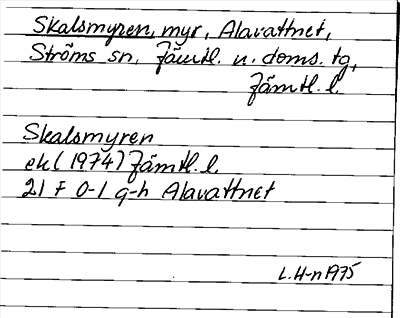 Skalsmyren, myr, Alavattnet,
Ströms sn, Jämtl. n. doms. tg,
Jämtl. l.
Skalsmyren
ek (1974) Jämtl. l.
21 F 0-1 g-h Alavattnet
L. H-n 1975